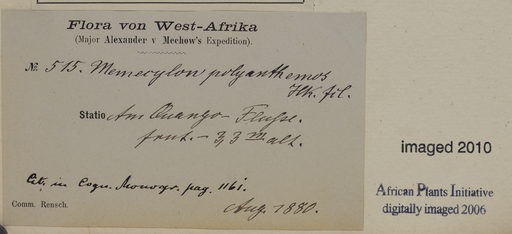 Flora von West-Afrika
(Major Alexander v Mechow's Expedition).
№ 515. Memecylon polyanthemos
Hk. fil.
Statio Am Quango-Flusse.
frut. - 3,3 m alt.
Cit. in Cogn. Monogr. pag. 1161.
Comm. Rensch.
Aug. 1880.
imaged 2010
African Plants Initiative
digitally imaged 2006